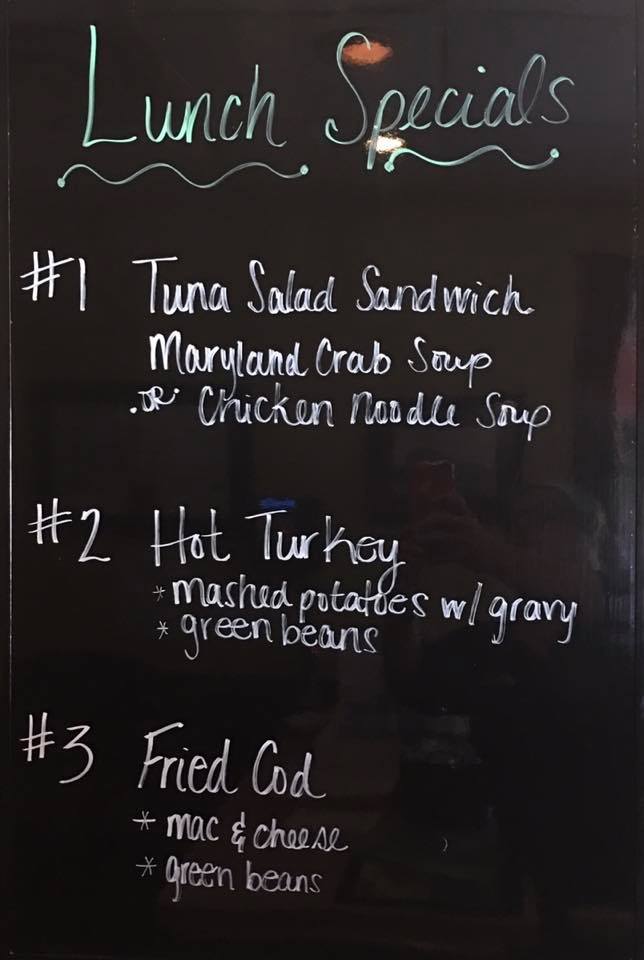 Lunch Specials
#1 Tuna Salad Sandwich
Maryland Crab Soup
.OR. Chicken Noodle Soup
#2 Hot Turkey
* mashed potatoes w/ gravy
* green beans
#3 Fried Cod
* mac & cheese
* green beans